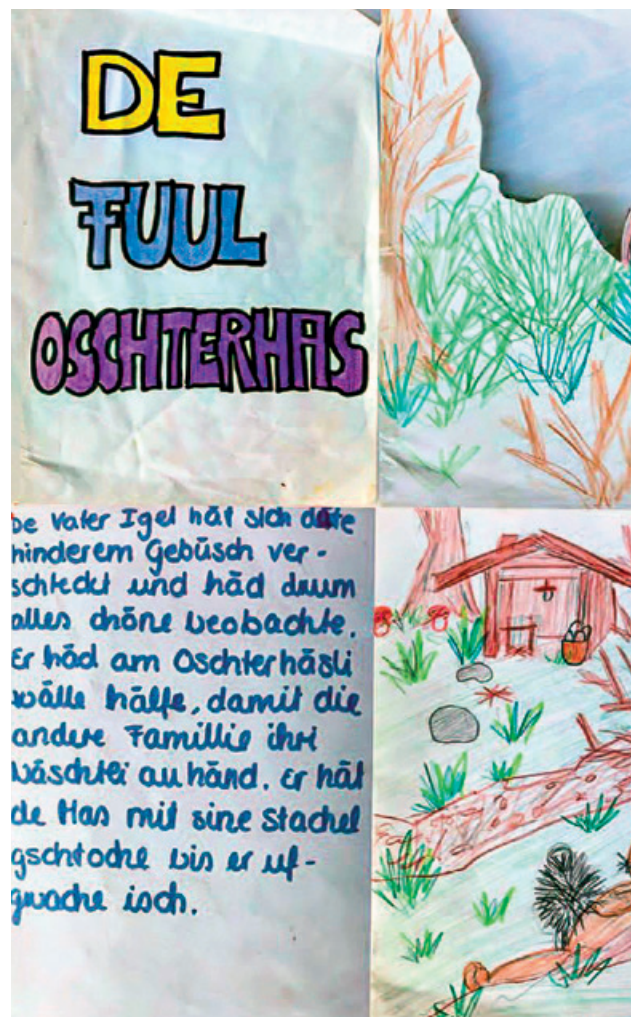 DE
FUUL
OSCHTERHAS
De Vater Igel hät sich döte
hinderem Gebüsch ver-
schteckt und häd drum
alles chöne beobachte.
Er häd am Oschterhäsli
wälle hälfe, damit die
andere Famillie ihri
Näschtli au händ. Er hät
de Has mit sine Stachel
gschtoche bis er uf-
gwache isch.